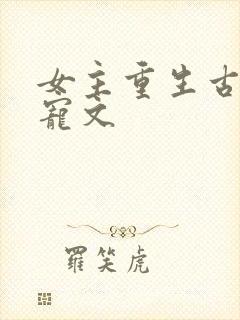 女主重生古
寵文
羅笑虎